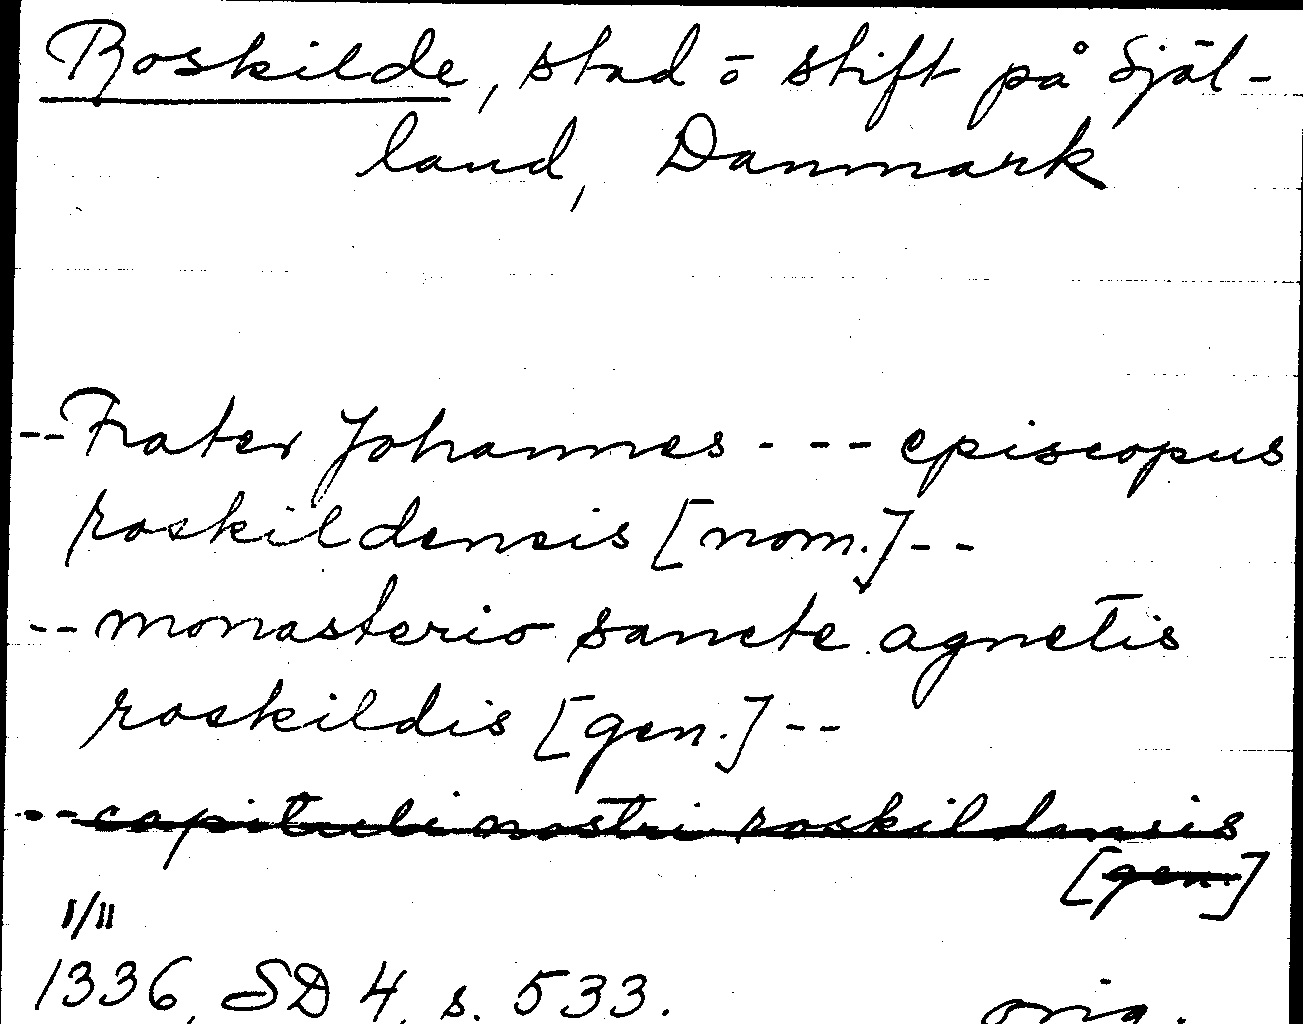 Roskilde, stad ō stift på Själ-
land, Danmark
-- Frater Johannes - --- episcopus
roskildensis [nom.] --
-- monasterio sancte agnetis
roskildis [gen.] --
-- capituli nostri roskildensis
[gen.]
I/II
1336, SD 4, s. 533. orig.